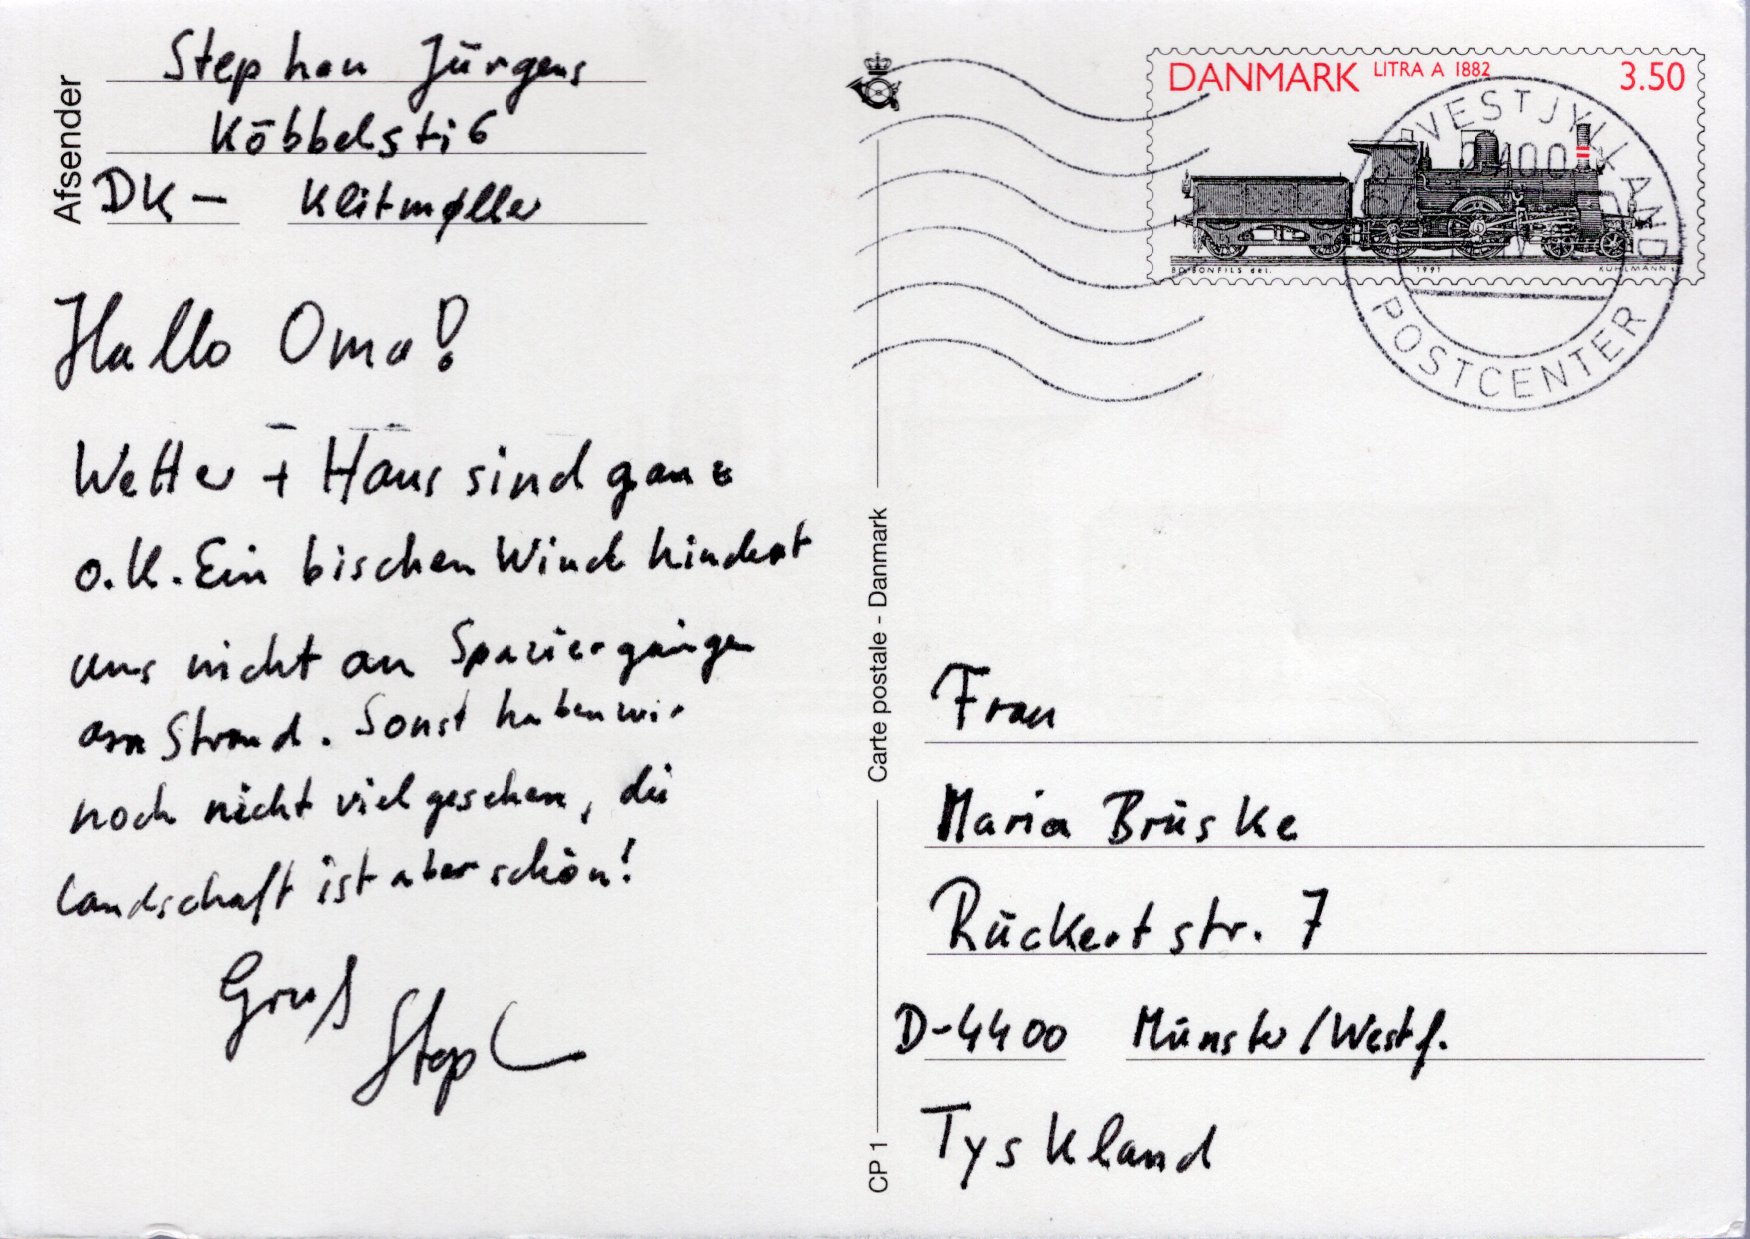 Afsender
Stephan Jürgens
Köbbelsti 6
DK – Klitmøller
Hallo Oma!
Wetter + Haus sind ganz
o.k. Ein bischen Wind hindert
uns nicht an Spaziergängen
am Strand. Sonst haben wir
noch nicht viel gesehen, die
Landschaft ist aber schön!
Gruß
Steph
CP 1
Carte postale - Danmark
DANMARK LITRA A 1882 3.50
BO BONFILS del. 1991 KÜHLMANN sc.
VESTJYLLAND
POSTCENTER
Frau
Maria Brüske
Rückertstr. 7
D-4400 Münster/Westf.
Tyskland